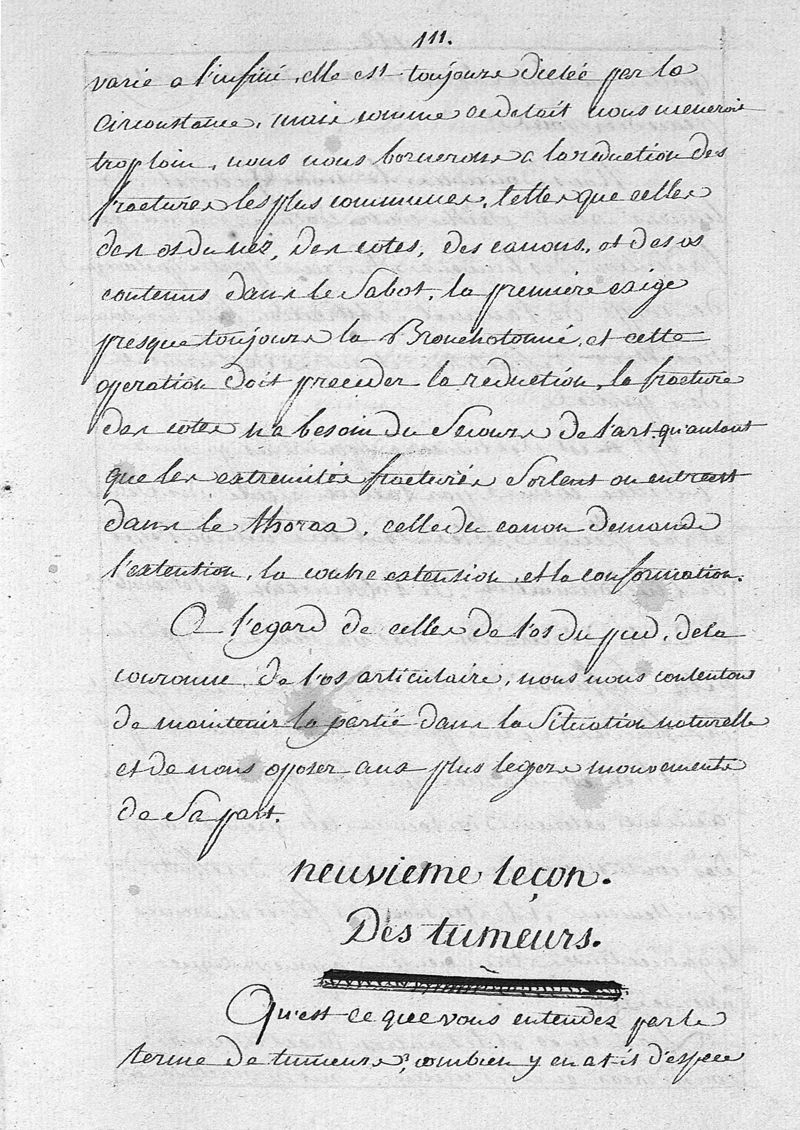 111.
varie a l'infini, elle est toujours dictée par la
circonstance, mais comme ce detail nous meneroit
trop loin, nous nous bornerons a la reduction des
fractures les plus communes, telles que celles
des os du nez, des cotes, des canons, et des os
contenus dans le Sabot, la premiere exige
presque toujours la Bronchotomie, et cette
operation doit preceder la reduction, la fracture
des cotes n'a besoin du Secours de l'art qu'autant
que les extremités fracturées Sortent ou entrent
dans le thorax, celle du canon demande
l'extention, la contre extension, et la conformation.
A l'egard de celles de l'os du pied, de la
couronne, de l'os articulaire, nous nous contentons
de maintenir la partie dans la Situation naturelle
et de nous oposer aux plus legers mouvements
de Sa part.
neuvieme leçon.
Des tumeurs.
Qu'est ce que vous entendez par le
terme de tumeurs, combien y en at-il d'espece